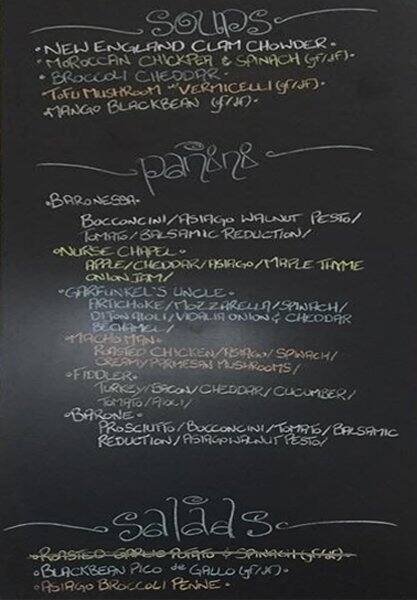 SOUPS
• NEW ENGLAND CLAM CHOWDER •
• MOROCCAN CHICKPEA & SPINACH (gf/df) •
• BROCCOLI CHEDDAR •
• TOFU MUSHROOM w/ VERMICELLI (gf/df) •
• MANGO BLACKBEAN (gf/df) •
panini
• BARONESSA •
BOCCONCINI/ASIAGO WALNUT PESTO/
TOMATO/BALSAMIC REDUCTION/
• NURSE CHAPEL •
APPLE/CHEDDAR/ASIAGO/MAPLE THYME
ONION JAM/
• GARFUNKEL'S UNCLE •
ARTICHOKE/MOZZARELLA/SPINACH/
DIJON AIOLI/VIDALIA ONION & CHEDDAR
BECHAMEL/
• MACHO MAN •
ROASTED CHICKEN/ASIAGO/SPINACH/
CREAMY PARMESAN MUSHROOMS/
• FIDDLER •
TURKEY/BACON/CHEDDAR/CUCUMBER/
TOMATO/AIOLI/
• BARONE •
PROSCIUTTO/BOCCONCINI/TOMATO/BALSAMIC
REDUCTION/ASIAGO WALNUT PESTO/
salads
• ROASTED GARLIC POTATO & SPINACH (gf/df) •
• BLACKBEAN PICO de GALLO (gf/df) •
• ASIAGO BROCCOLI PENNE •